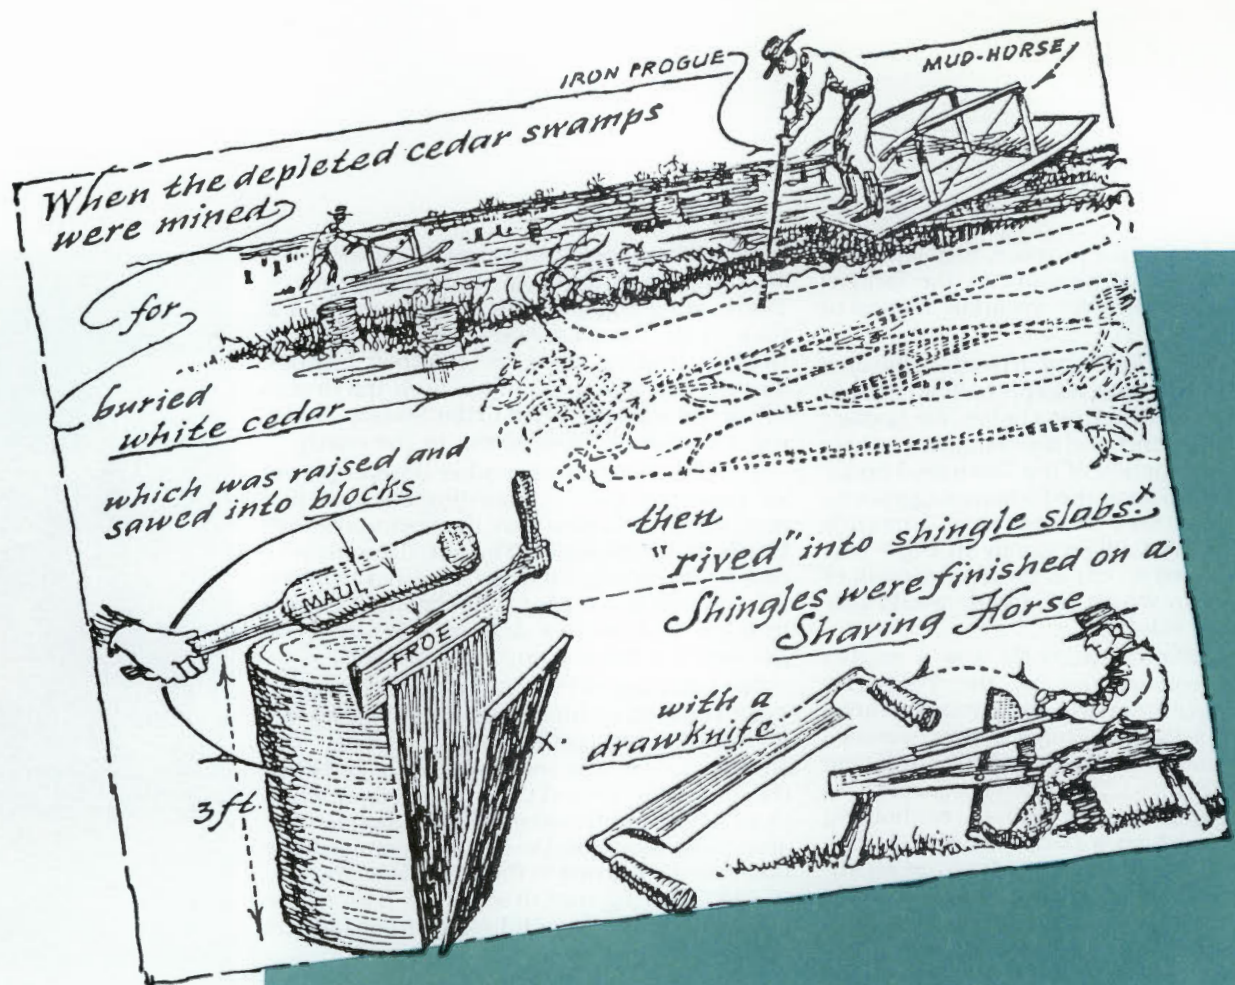 IRON PROGUE
MUD-HORSE
When the depleted cedar swamps
were mined
for
buried
white cedar
which was raised and
sawed into blocks
MAUL
FROE
3 ft.
then
"rived" into shingle slabs.x
Shingles were finished on a
Shaving Horse
with a
drawknife
x.